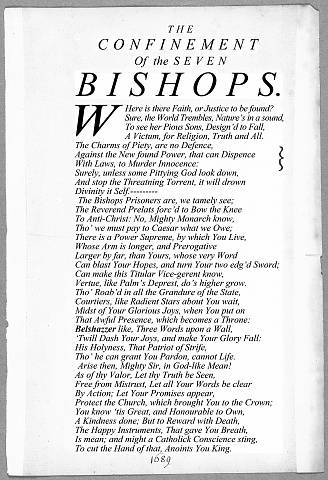 THE
CONFINEMENT
Of the SEVEN
BISHOPS.
WHere is there Faith, or Justice to be found?
Sure, the World Trembles, Nature's in a sound,
To see her Pious Sons, Design'd to Fall,
A Victum, for Religion, Truth and All.
The Charms of Piety, are no Defence,
Against the New found Power, that can Dispence
With Laws, to Murder Innocence:
Surely, unless some Pittying God look down,
And stop the Threatning Torrent, it will drown
Divinity it Self.---------
The Bishops Prisoners are, we tamely see;
The Reverend Prelats forc'd to Bow the Knee
To Anti-Christ: No, Mighty Monarch know,
Tho' we must pay to Caesar what we Owe;
There is a Power Supreme, by which You Live,
Whose Arm is longer, and Prerogative
Larger by far, than Yours, whose very Word
Can blast Your Hopes, and turn Your two edg'd Sword;
Can make this Titular Vice-gerent know,
Vertue, like Palm's Deprest, do's higher grow.
Tho' Roab'd in all the Grandure of the State,
Courtiers, like Radient Stars about You wait,
Midst of Your Glorious Joys, when You put on
That Awful Presence, which becomes a Throne:
Belshazzer like, Three Words upon a Wall,
'Twill Dash Your Joys, and make Your Glory Fall:
His Holyness, That Patriot of Strife,
Tho' he can grant You Pardon, cannot Life.
Arise then, Mighty Sir, in God-like Mean!
As of thy Valor, Let thy Truth be Seen,
Free from Mistrust, Let all Your Words be clear
By Action; Let Your Promises appear,
Protect the Church, which brought You to the Crown;
You know 'tis Great, and Honourable to Own,
A Kindness done; But to Reward with Death,
The Happy Instruments, That gave You Breath,
Is mean; and might a Catholick Conscience sting,
To cut the Hand of that, Anoints You King.
1689